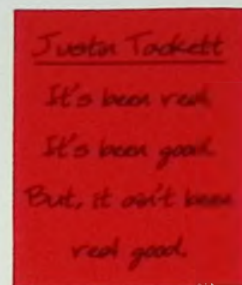 Justin Tackett
It's been real
It's been good.
But, it ain't been
real good.